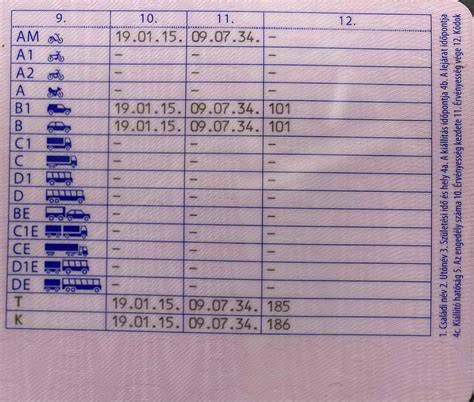 9. 10. 11. 12.
AM 19.01.15. 09.07.34. –
A1 – – –
A2 – – –
A – – –
B1 19.01.15. 09.07.34. 101
B 19.01.15. 09.07.34. 101
C1 – – –
C – – –
D1 – – –
D – – –
BE – – –
C1E – – –
CE – – –
D1E – – –
DE – – –
T 19.01.15. 09.07.34. 185
K 19.01.15. 09.07.34. 186
1. Családi név 2. Utónév 3. Születési idő és hely 4a. A kiállítás időpontja 4b. A lejárat időpontja
4c. Kiállító hatóság 5. Az engedély száma 10. Érvényesség kezdete 11. Érvényesség vége 12. Kódok